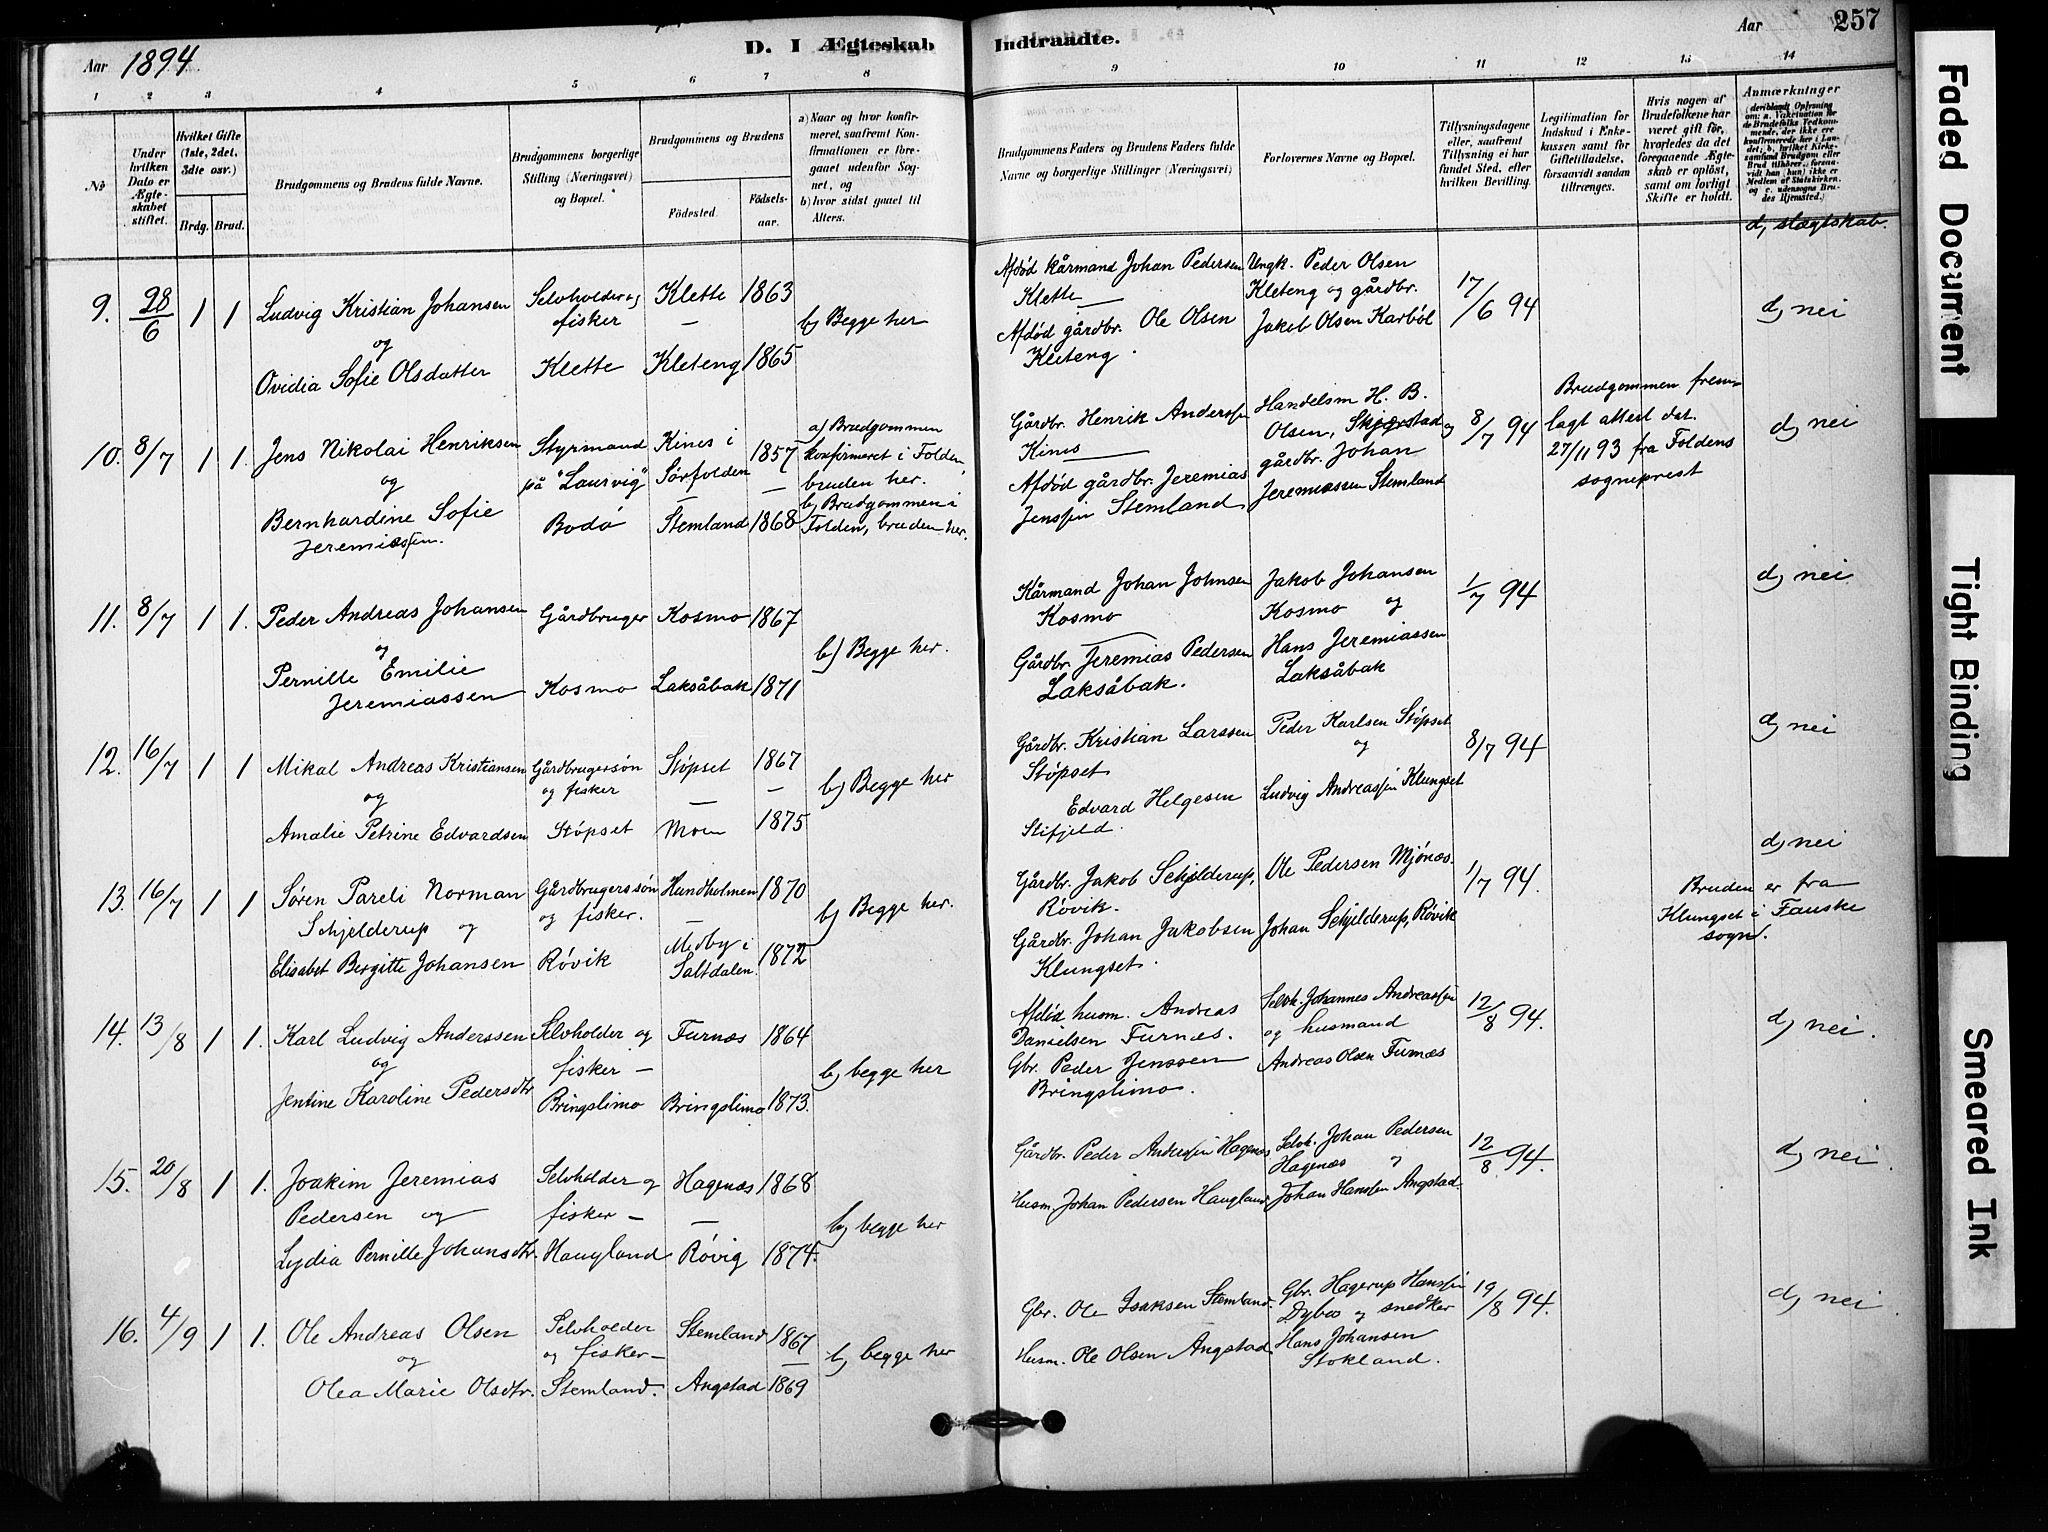 Aar 1894
D. I Ægteskab Indtraadte.
Aar
257
1 2 3 4 5 6 7 8 9 10 11 12 13 14
No
Under hvilken Dato er Ægte-skabet stiftet.
Hvilket Gifte (1ste, 2det, 3dte osv.)
Brdg. Brud.
Brudgommens og Brudens fulde Navne.
Brudgommens borgerlige Stilling (Næringsvei) og Bopæl.
Brudgommens og Brudens
Födested.
Födsels-aar.
a) Naar og hvor konfir-meret, saafremt Kon-firmationen er fore-gaaet udenfor Sog-net, og
b) hvor sidst gaaet til Alters.
Brudgommens Faders og Brudens Faders fulde Navne og borgerlige Stillinger (Næringsvei)
Forlovernes Navne og Bopæl.
Tillysningsdagene eller, saafremt Tillysning ei har fundet Sted, efter hvilken Bevilling.
Legitimation for Indskud i Enke-kassen samt for Giftetilladelse, forsaavidt saadan tiltrænges.
Hvis nogen af Brudefolkene har været gift för, hvorledes da det foregaaende Ægte-skab er oplöst, samt om lovligt Skifte er holdt.
Anmærkninger
(deriblandt Oplysning om: a. Vakcination for de Brudefolks Vedkom-mende, der ikke ere konfirmerede her i Lan-det; b. hvilket Kirke-samfund Brudgom eller Brud tilhörer, forsaa-vidt han (hun) ikke er Medlem af Statskirken, og c. udensogns Bru-des Hjemsted.)
d, slægtskab.
9. 28/6 1 1 Ludvig Kristian Johansen
og
Ovidia Sofie Olsdatter
Selvholder og
fisker
Klette
Klette 1863
Kleteng 1865
b) Begge her
Afdød kårmand Johan Pedersen
Klette
Afdød gårdbr. Ole Olsen
Kleteng.
Ungk. Peder Olsen
Kleteng og gårdbr.
Jakob Olsen Karbøl
17/6 94
d, nei
10. 8/7 1 1. Jens Nikolai Henriksen
og
Bernhardine Sofie
Jeremiassen.
Styrmand
på "Laurvig"
Bodø
Kines i
Sørfolden 1857
Stemland 1868
a) Brudgommen
konfirmeret i Folden,
bruden her.
b) Brudgommen i
Folden, bruden her.
Gårdbr. Henrik Anderssen
Kines
Afdød gårdbr. Jeremias
Jenssen Stemland
Handelsm H. B.
Olsen, Skjerstad og
gårdbr. Johan
Jeremiassen Stemland
8/7 94
Brudgommen frem-
lagt attest dat.
27/11 93 fra Foldens
sogneprest
d, nei
11. 8/7 1 1. Peder Andreas Johansen
og
Pernille Emilie
Jeremiassen
Gårdbruger
Kosmo
Kosmo 1867
Laksåbak 1871
b) Begge her.
Kårmand Johan Johnsen
Kosmo
Gårdbr. Jeremias Pedersen
Laksåbak.
Jakob Johansen
Kosmo og
Hans Jeremiassen
Laksåbak
1/7 94
d, nei
12. 16/7 1 1 Mikal Andreas Kristiansen
og
Amalie Petrine Edvardsen
Gårdbrugersøn
og fisker
Støpset
Støpset 1867
Moen 1875
b) Begge her
Gårdbr. Kristian Larssen
Støpset
Edvard Helgesen
Stifjeld.
Peder Karlsen Støpset
og
Ludvig Andreassen Klungset
8/7 94
d, nei
13. 16/7 1 1 Søren Pareli Norman
Schjelderup og
Elisabet Bergitte Johansen
Gårdbrugerssøn
og fisker.
Røvik
Hundholmen 1870
Medby i
Saltdalen 1872
b) Begge her.
Gårdbr. Jakob Schjelderup,
Røvik.
Gårdbr. Johan Jakobsen
Klungset.
Ole Pedersen Mjønæs.
Johan Schjelderup, Røvik
1/7 94.
Bruden er fra
Klungset i Fauske
sogn.
d, nei
14. 13/8 1 1. Karl Ludvig Anderssen
og
Jentine Karoline Pedersdtr
Selvholder og
fisker —
Bringslimo
Furnæs 1864
Bringslimo 1873.
b) begge her
Afdød husm. Andreas
Danielsen Furnæs.
Gbr. Peder Jenssen
Bringslimo.
Selvh. Johannes Andreassen
og husmand
Andreas Olsen Furnæs
12/8 94.
d, nei.
15. 20/8 1 1. Joakim Jeremias
Pedersen og
Lydia Pernille Johansdtr.
Selvholder og
fisker —
Haugland
Hagenæs 1868
Røvig 1874.
b) begge her
Gårdbr. Peder Anderssen Hagenæs.
Husm. Johan Pedersen Haugland
Selvh. Johan Pedersen
Hagenæs og
Johan Hanssen Angstad.
12/8 94.
d, nei.
16. 4/9 1 1. Ole Andreas Olsen
og
Olea Marie Olsdtr.
Selvholder
og fisker —
Stemland.
Stemland 1867
Angstad 1869
b) begge her
Gbr. Ole Isaksen Stemland.
Husm. Ole Olsen Angstad.
Gbr. Hagerup Hanssen
Dybvo og snedker
Hans Johansen
Stokland.
19/8 94.
d, nei
Faded Document
Tight Binding
Smeared Ink